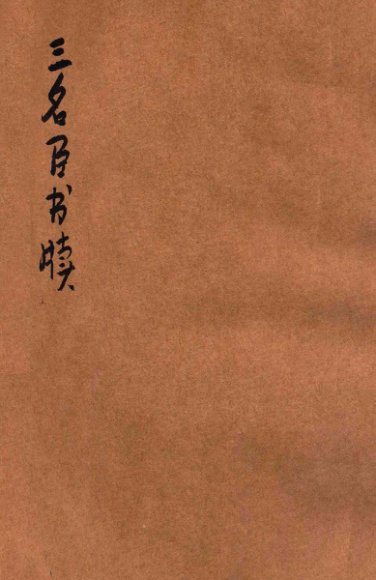 三名臣书牍